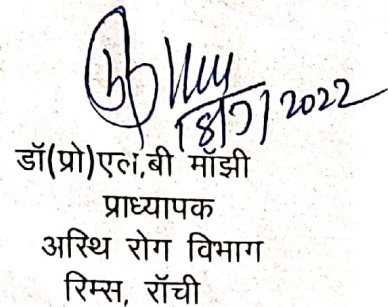 18/7/2022
डॉ(प्रो)एल,बी मॉंझी
प्राध्यापक
अस्थि रोग विभाग
रिम्स, रॉंची